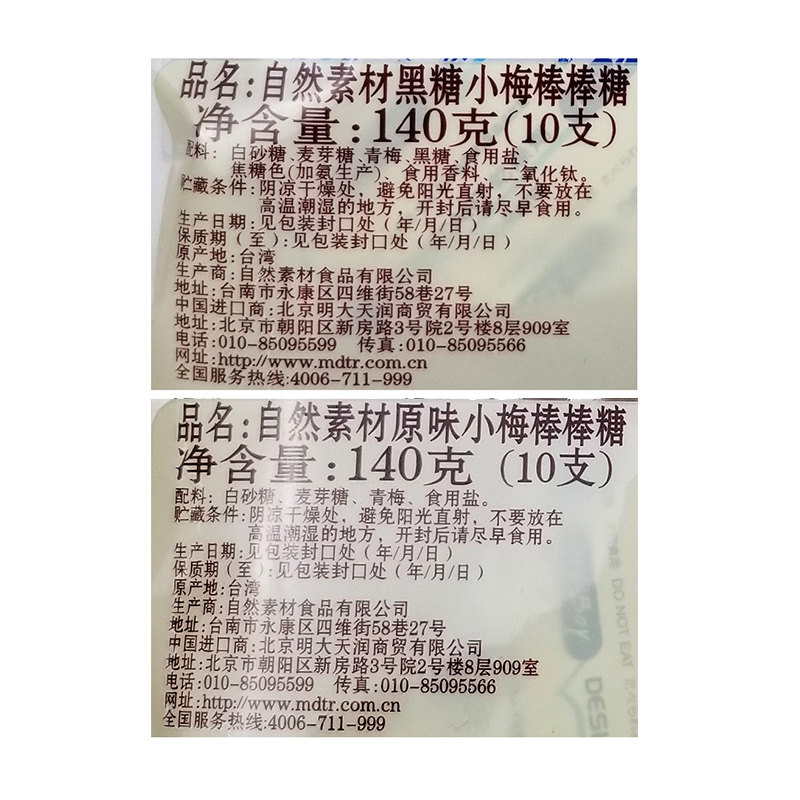 品名:自然素材黑糖小梅棒棒糖
净含量:140克(10支)
配料: 白砂糖、麦芽糖、青梅、黑糖、食用盐、
焦糖色(加氨生产)、食用香料、二氧化钛。
贮藏条件: 阴凉干燥处, 避免阳光直射, 不要放在
高温潮湿的地方, 开封后请尽早食用。
生产日期:见包装封口处(年/月/日)
保质期(至):见包装封口处(年/月/日)
原产地:台湾
生产商:自然素材食品有限公司
地址:台南市永康区四维街58巷27号
中国进口商:北京明大天润商贸有限公司
地址:北京市朝阳区新房路3号院2号楼8层909室
电话:010-85095599 传真:010-85095566
网址:http://www.mdtr.com.cn
全国服务热线:4006-711-999
品名:自然素材原味小梅棒棒糖
净含量:140克(10支)
配料: 白砂糖、麦芽糖、青梅、食用盐。
贮藏条件:阴凉干燥处, 避免阳光直射, 不要放在
高温潮湿的地方, 开封后请尽早食用。
生产日期:见包装封口处(年/月/日)
保质期(至):见包装封口处(年/月/日)
原产地:台湾
生产商:自然素材食品有限公司
地址:台南市永康区四维街58巷27号
中国进口商:北京明大天润商贸有限公司
地址:北京市朝阳区新房路3号院2号楼8层909室
电话:010-85095599 传真:010-85095566
网址:http://www.mdtr.com.cn
全国服务热线:4006-711-999
DO NOT EAT